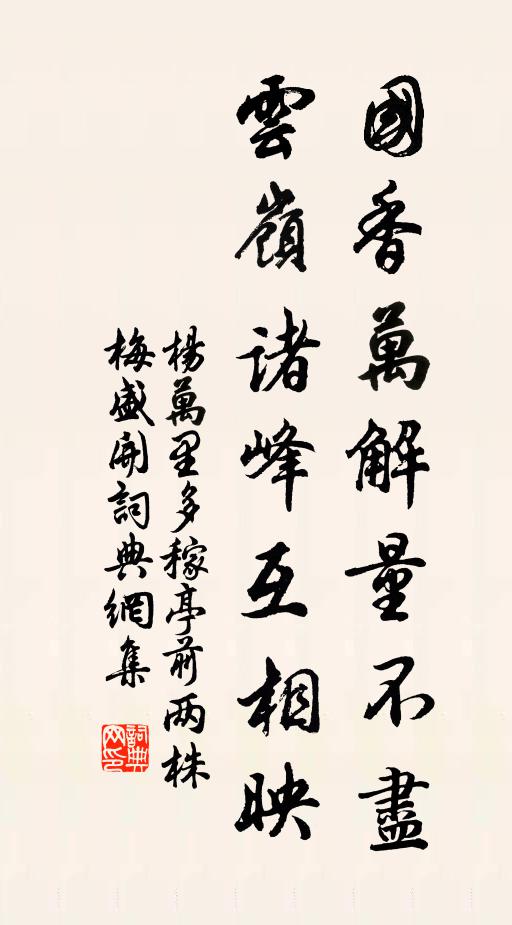 國香萬解量不盡
雲嶺諸峰互相映
楊萬里多稼亭前两株
梅盛開詞典網集
詞典
网印